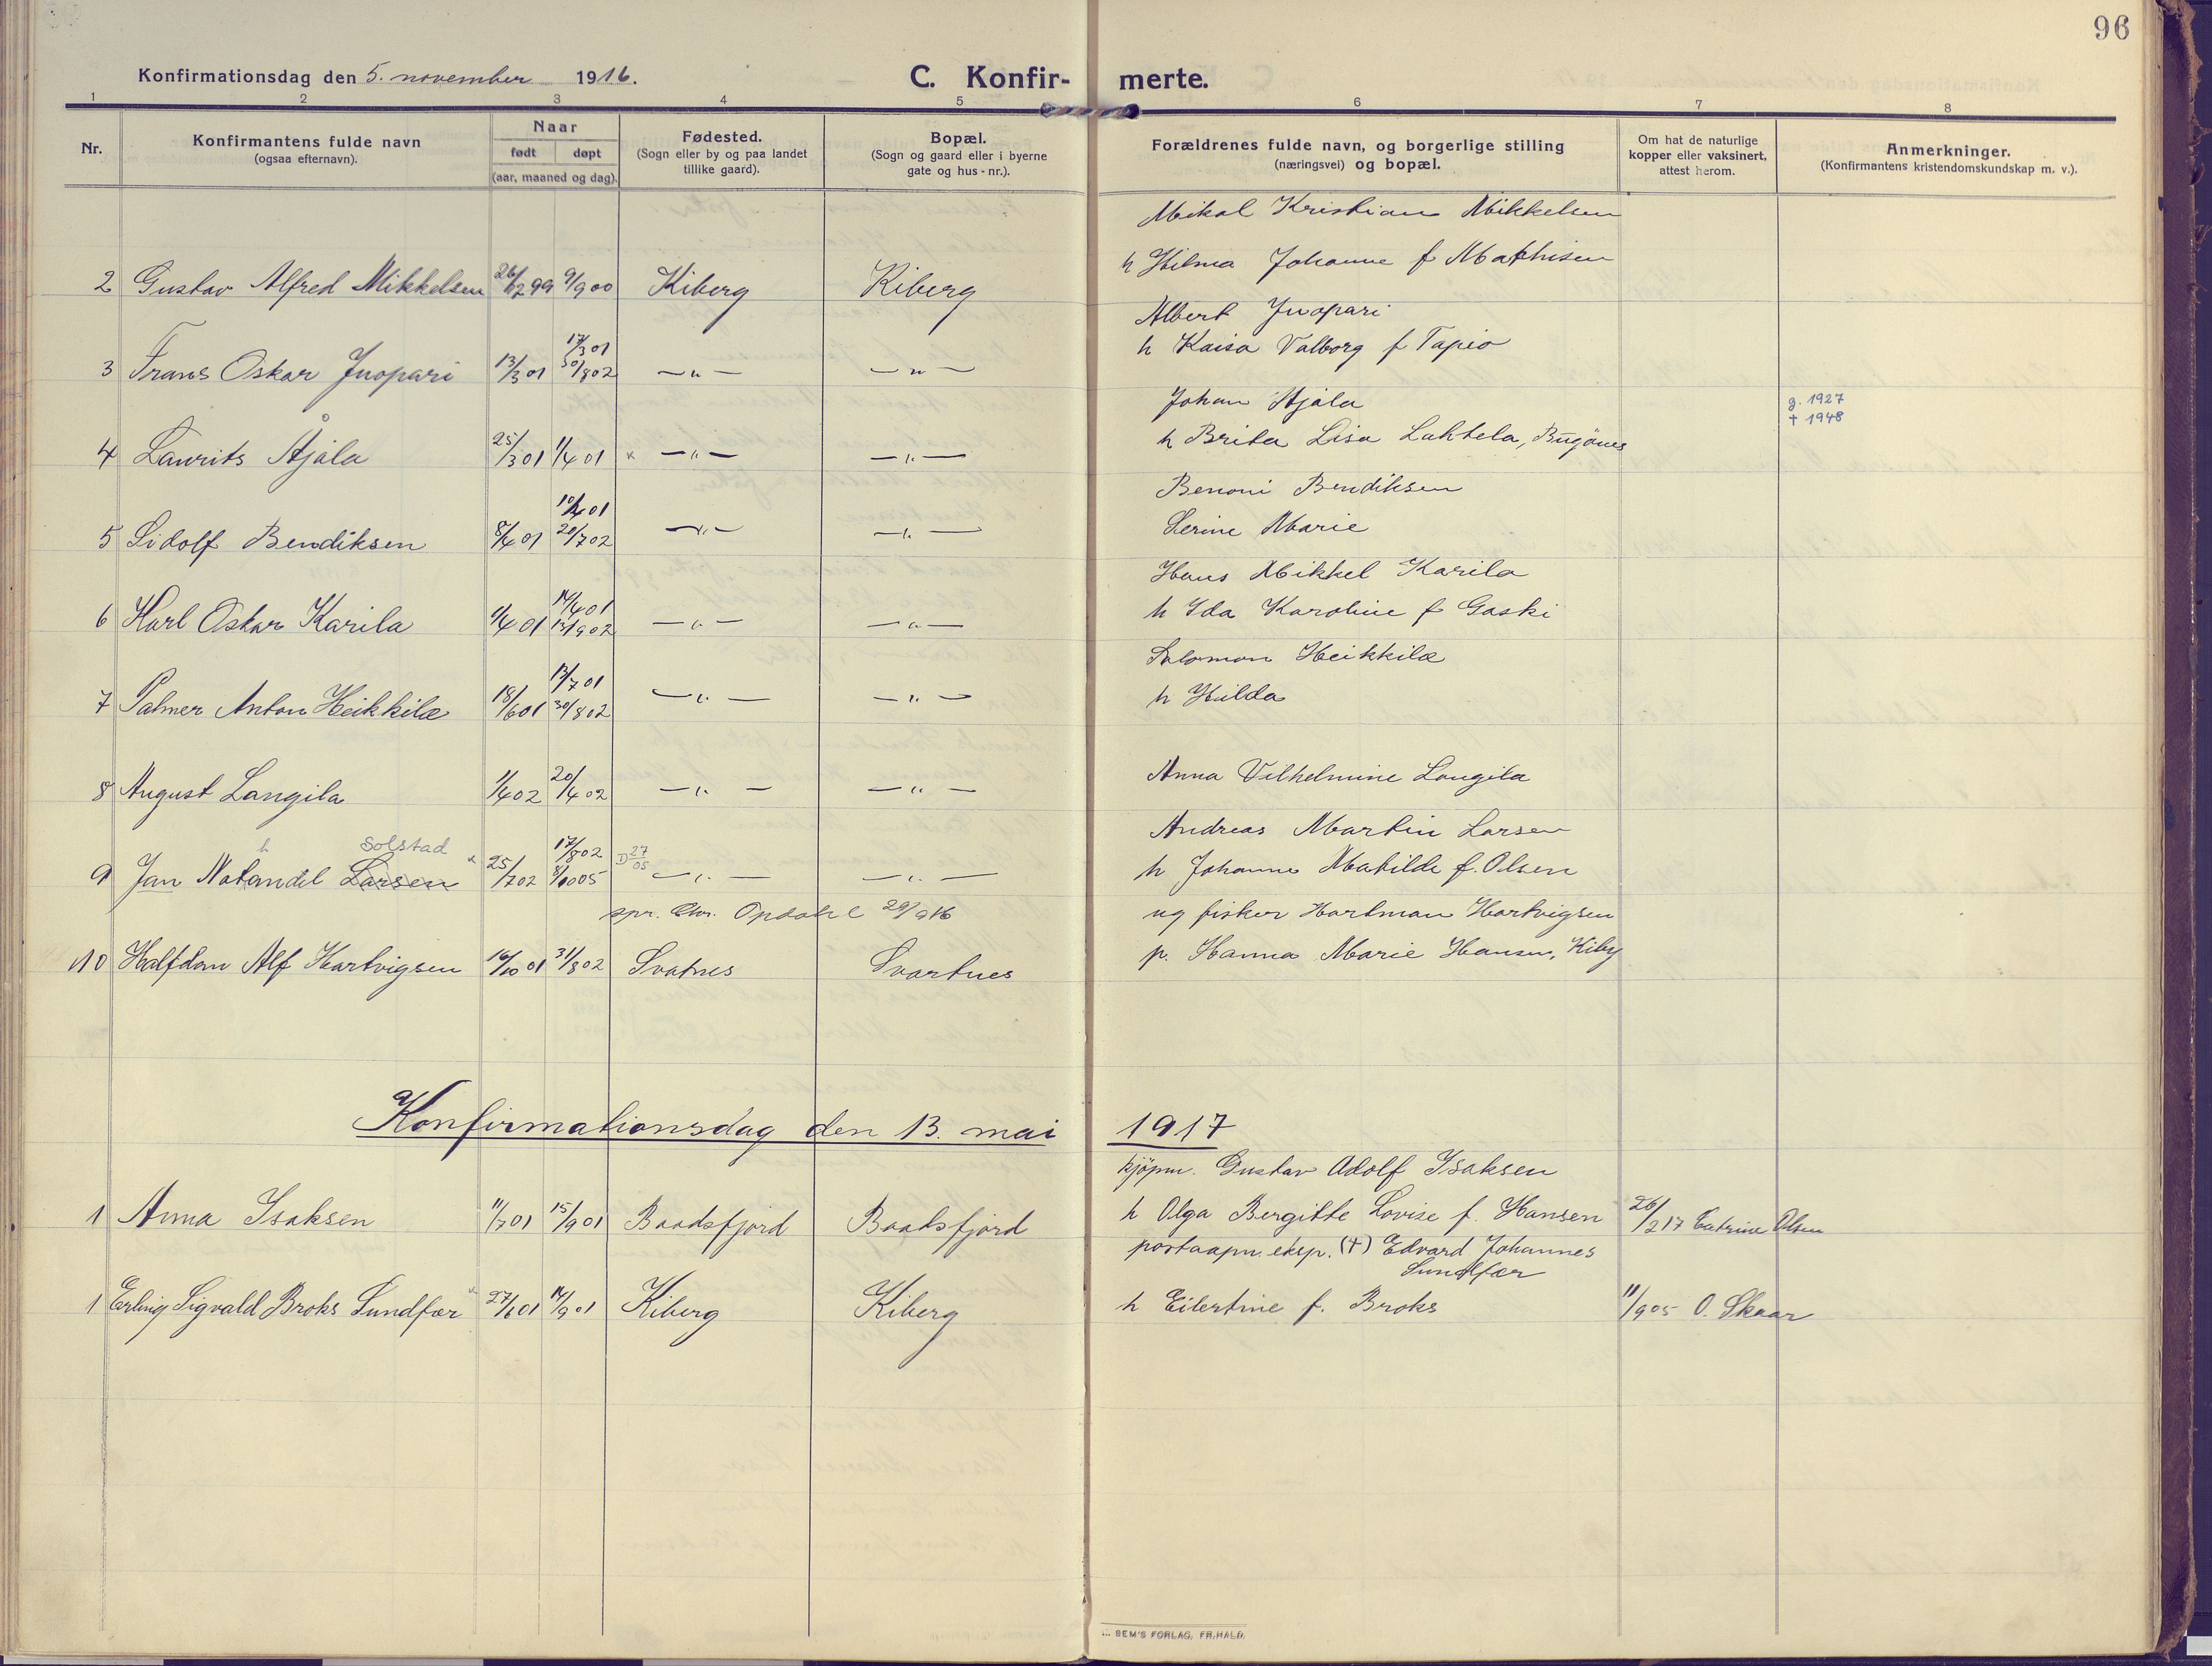 96
Konfirmationsdag den 5. november 1916.
C. Konfir- merte.
1 2 3 4 5 6 7 8
Nr.
Konfirmantens fulde navn
(ogsaa efternavn).
Naar
født døpt
(aar, maaned og dag).
Fødested.
(Sogn eller by og paa landet
tillike gaard).
Bopæl.
(Sogn og gaard eller i byerne
gate og hus-nr.).
Forældrenes fulde navn, og borgerlige stilling
(næringsvei) og bopæl.
Om hat de naturlige
kopper eller vaksinert,
attest herom.
Anmerkninger.
(Konfirmantens kristendomskundskap m. v.).
Mikal Kristian Mikkelsen
h Hilma Johanne f Mathisen
2 Gustav Alfred Mikkelsen 26/12 99 9/9 00 Kiberg Kiberg
Albert Juopari
h Kaisa Valborg f Tapio
17/3 01
3 Frans Oskar Juopari 13/3 01 30/8 02 — " — — " —
Johan Äjälä
g. 1927
† 1948
h Brita Lisa Lahtela, Bugönes
4 Laurits Åjala 25/3 01 1/4 01 x — " — — " —
Benoni Bendiksen
10/4 01
Serine Marie
5 Sidolf Bendiksen 8/4 01 20/7 02 — " — — " —
Hans Mikkel Karila
14/4 01
h Ida Karoline f Gaski
6 Karl Oskar Karila 1/4 01 13/9 02 — " — — " —
Salomon Heikkilæ
13/7 01
h Hilda
7 Palmer Anton Heikkilæ 18/6 01 30/8 02 — " — — " —
Anna Vilhelmine Langila
8 August Langila 1/4 02 20/4 02 — " — — " —
Andreas Martin Larsen
h Solstad 17/8 02
D 27/05
h Johanne Matilde f. Olsen
9 Jan Natandel Larsen x 25/7 02 8/10 05 — " — — " —
spr. Chr. Opdahl 29/9 16
ug fisker Hartman Hartvigsen
p. Hanna Marie Hansen, Kibg
10 Halfdan Alf Hartvigsen 16/10 01 31/8 02 Svatnes Svartnes
Konfirmationsdag den 13. mai 1917
kjöpm. Gustav Adolf Isaksen
h Olga Bergitte Lovise f. Hansen
1 Anna Isaksen 11/7 01 15/9 01 Baadsfjord Baatsfjord 26/2 17 Catrine Olsen
postaapn. eksp. (†) Edvard Johannes
Sundfær
1 Erling Sigvald Broks Sundfær x 27/6 01 14/9 01 Kiberg Kiberg h Eilertine f. Broks 11/9 05 O. Skaar
SEM'S FORLAG, FR. HALD.